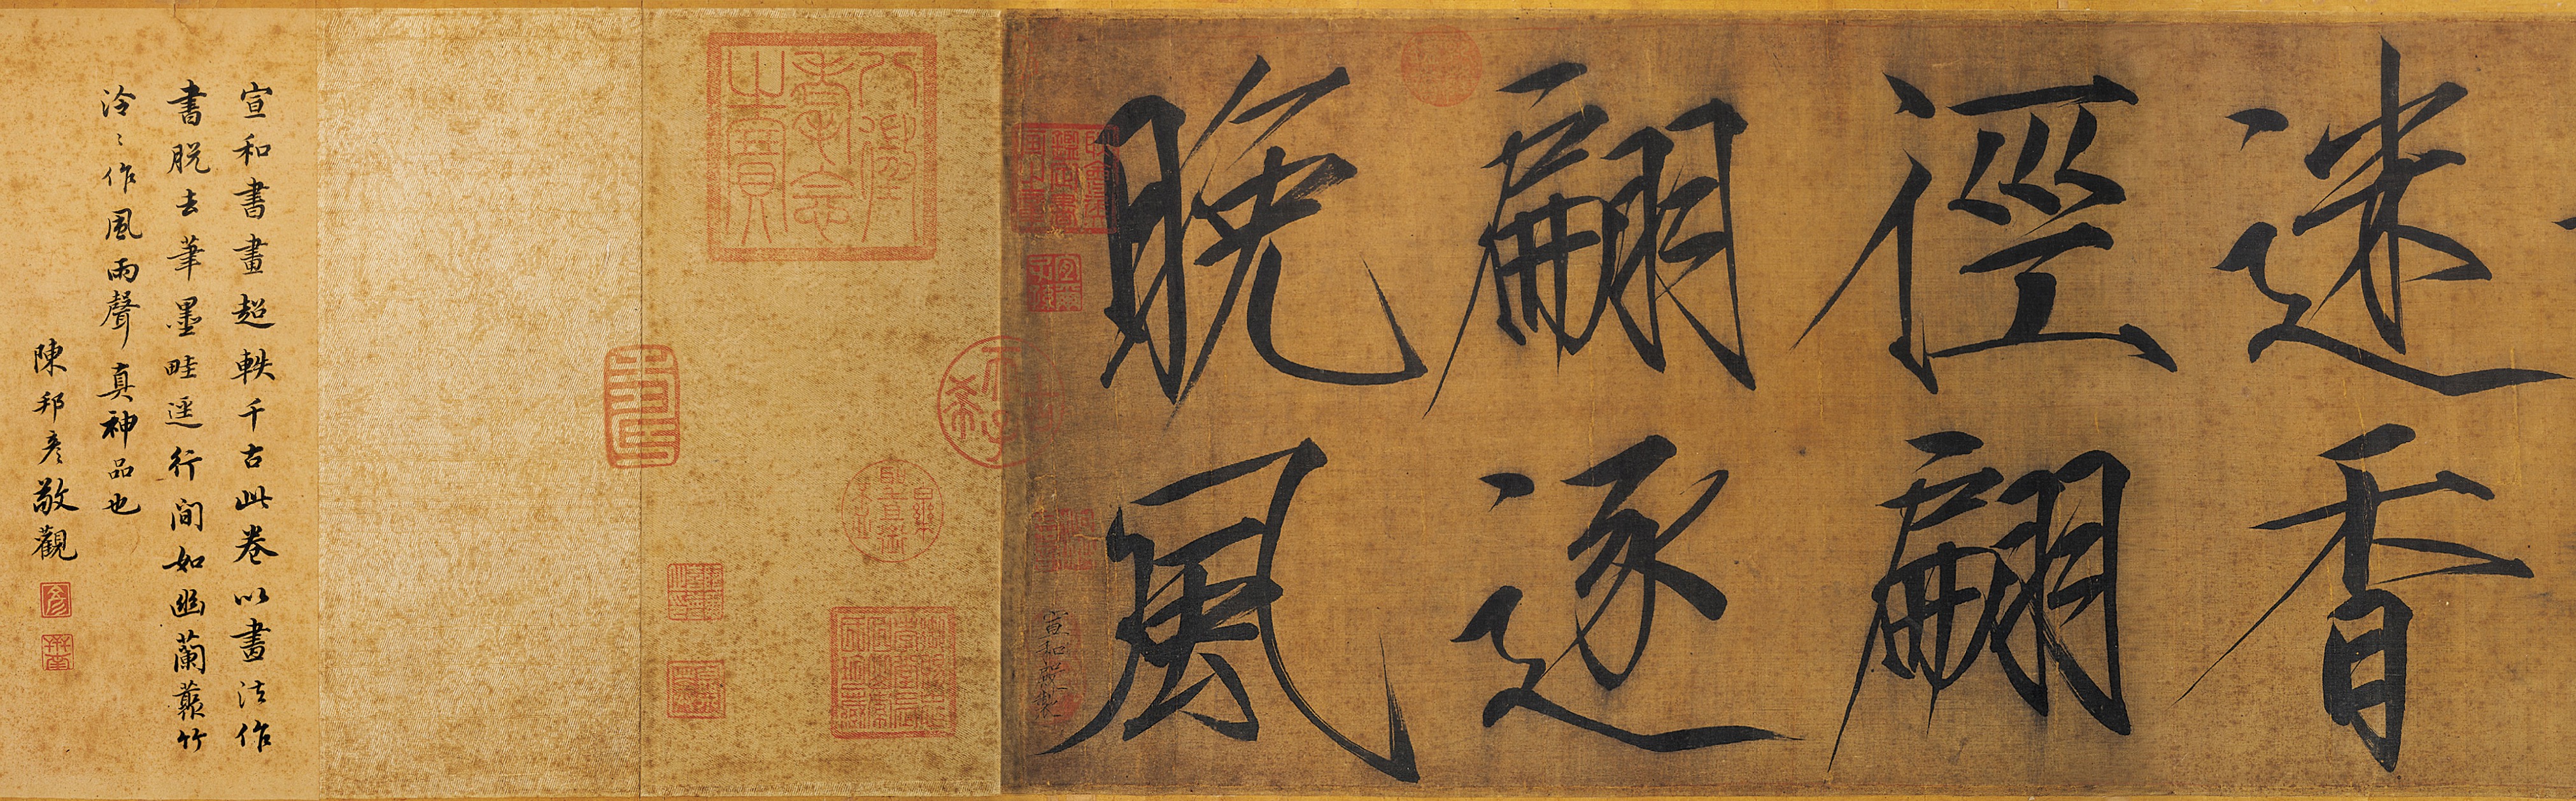 迷香
徑翩
翩逐
晚風
宣和殿製
八徵耄念之寶
宣和書畫超軼千古此卷以畫法作
書脫去筆墨畦逕行間如幽蘭叢竹
泠〻作風雨聲真神品也
陳邦彥敬觀